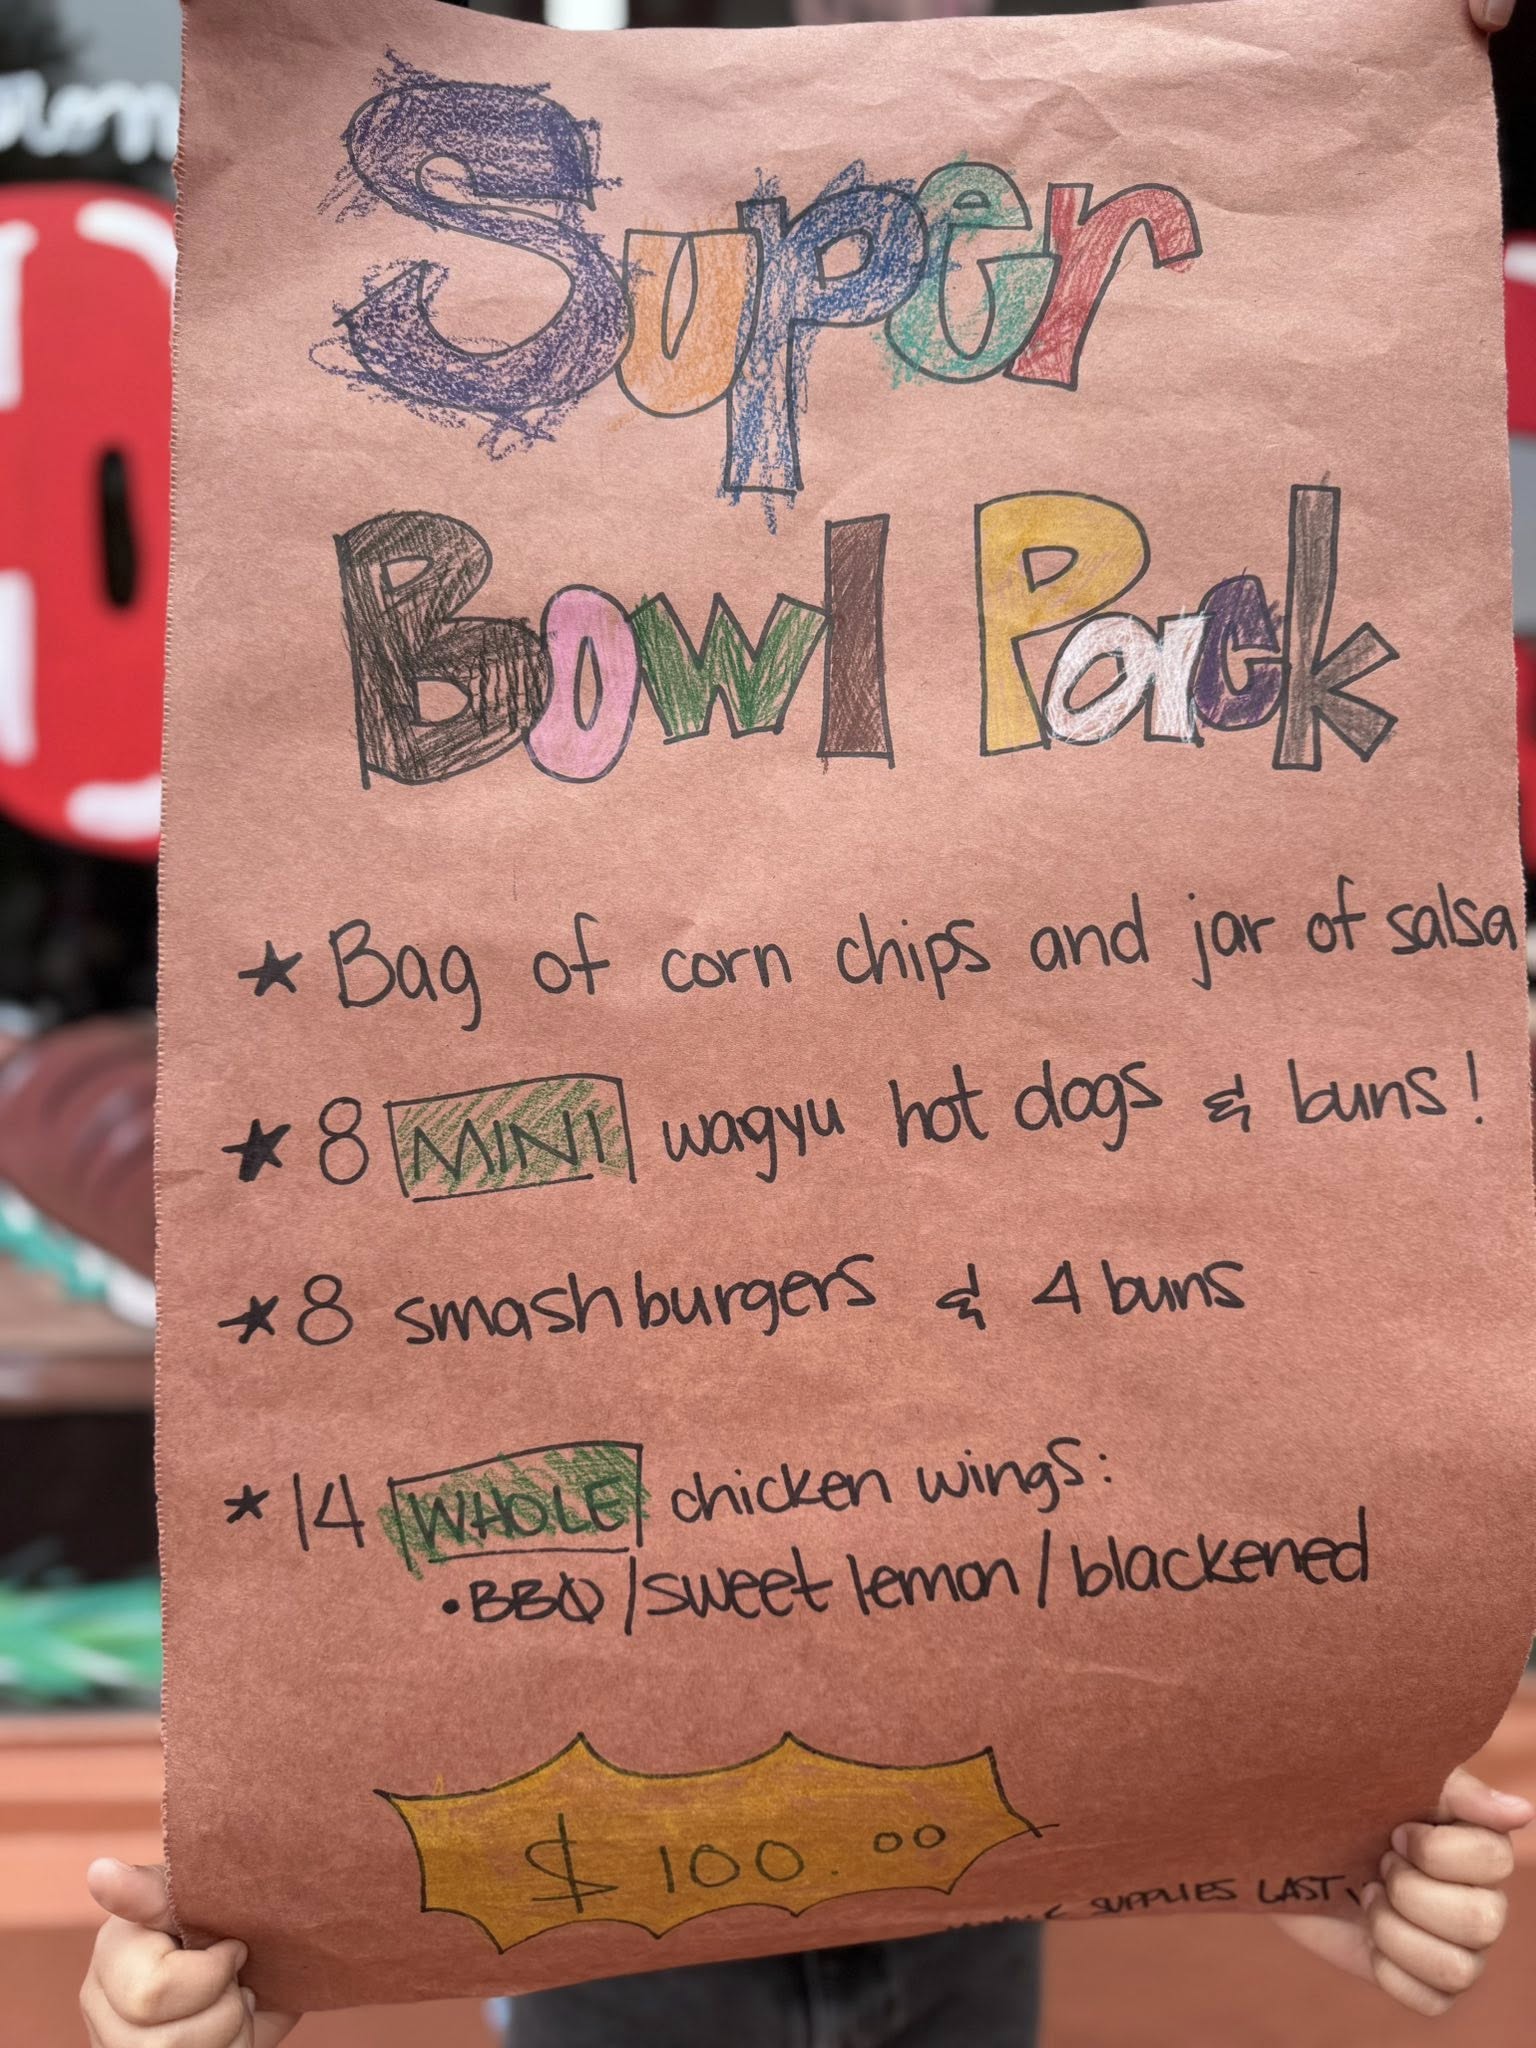 Super
Bowl Pack
★ Bag of corn chips and jar of salsa
★ 8 MINI wagyu hot dogs & buns!
★ 8 smashburgers & 4 buns
★ 14 WHOLE chicken wings:
• BBQ / sweet lemon / blackened
$100.00
SUPPLIES LAST